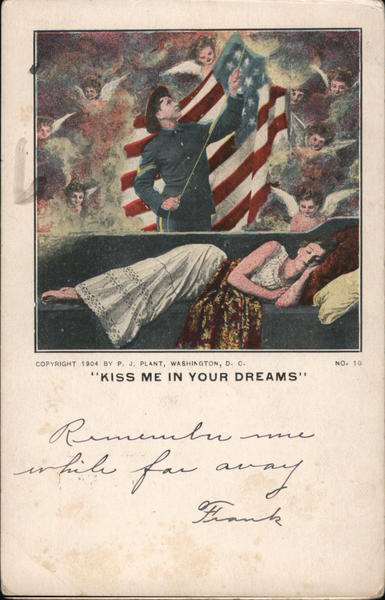 COPYRIGHT 1904 BY P. J. PLANT, WASHINGTON, D. C. NO. 10
"KISS ME IN YOUR DREAMS"
Remember me
while far away
Frank